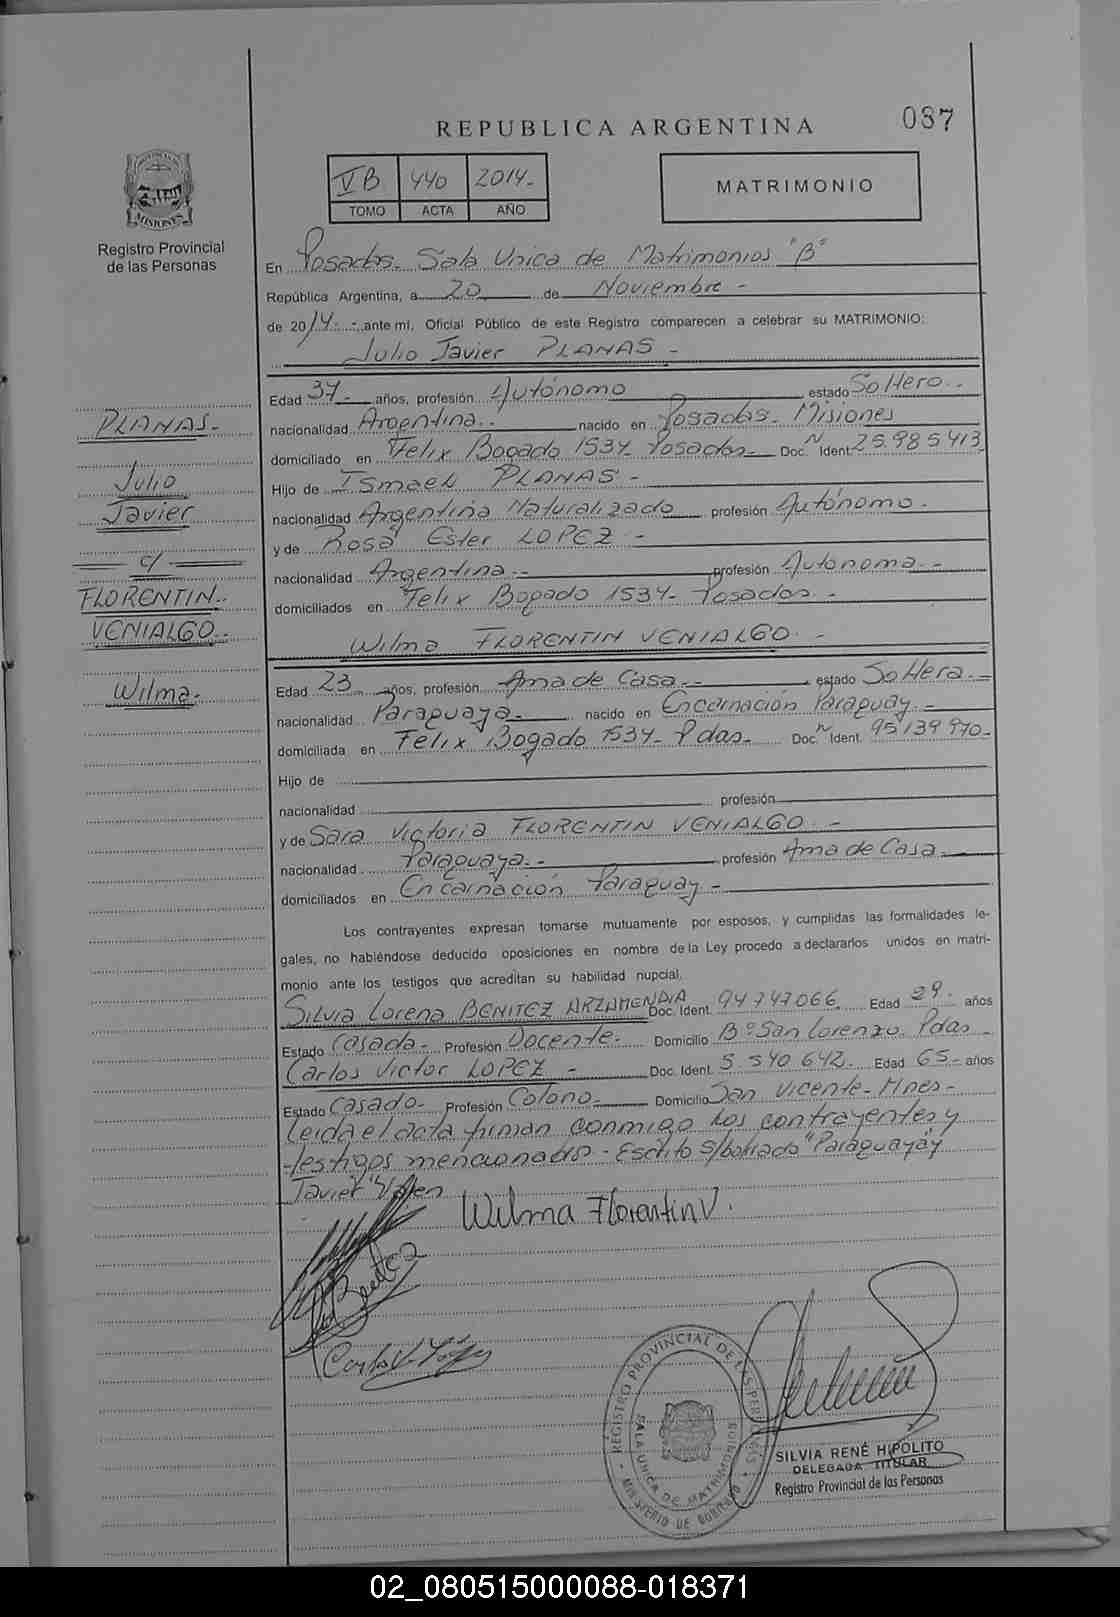 REPUBLICA ARGENTINA
087
VB 440 2014.-
TOMO ACTA AÑO
MATRIMONIO
PROVINCIA DE
MISIONES
Registro Provincial
de las Personas
En Posadas. Sala Unica de Matrimonios "B"
República Argentina, a 20 de Noviembre -
de 2014.- ante mi, Oficial Público de este Registro comparecen a celebrar su MATRIMONIO:
Julio Javier PLANAS -
Edad 37 años, profesión Autónomo estado Soltero.-
nacionalidad Argentina.- nacido en Posadas. Misiones
domiciliado en Felix Bogado 1534 Posadas- Doc. N Ident. 25.985413
Hijo de Ismael PLANAS.-
nacionalidad Argentina Naturalizado profesión Autónomo.
y de Rosa Ester LOPEZ.-
nacionalidad Argentina.- profesión Autónoma.-
domiciliados en Felix Bogado 1534- Posadas.-
Wilma FLORENTIN VENIALGO.-
Edad 23 años, profesión Ama de Casa.- estado Soltera.-
nacionalidad Paraguaya.- nacido en Encarnación Paraguay.-
domiciliada en Felix Bogado 1534- Pdas.- Doc. N Ident. 95139970-
Hijo de
nacionalidad profesión
y de Sara Victoria FLORENTIN VENIALGO.-
nacionalidad Paraguaya.- profesión Ama de Casa.-
domiciliados en Encarnación Paraguay.-
Los contrayentes expresan tomarse mutuamente por esposos, y cumplidas las formalidades le-
gales, no habiéndose deducido oposiciones en nombre de la Ley procedo a declararlos unidos en matri-
monio ante los testigos que acreditan su habilidad nupcial.
Silvia Lorena BENITEZ ARZAMENDIA Doc. Ident. 94747066 Edad 29. años
Estado Casada- Profesión Docente.- Domicilio Bº San Lorenzo. Pdas-
Carlos Victor LOPEZ - Doc. Ident. 5.540642. Edad 65- años
Estado Casado- Profesión Colono.- Domicilio San Vicente- Mnes-
Leida el acta firman conmigo los contrayentes y
testigos mencionados- Escrito s/borrado "Paraguaya" y
Javier "Valen
PLANAS.-
Julio
Javier
c/
FLORENTIN.
VENIALGO.-
Wilma.-
Wilma Florentin V.
Benitez
Carlos V. López
REGISTRO PROVINCIAL DE LAS PERSONAS
SALA UNICA DE MATRIMONIOS
MINISTERIO DE GOBIERNO
SILVIA RENÉ HIPOLITO
DELEGADA TITULAR
Registro Provincial de las Personas
02_080515000088-018371